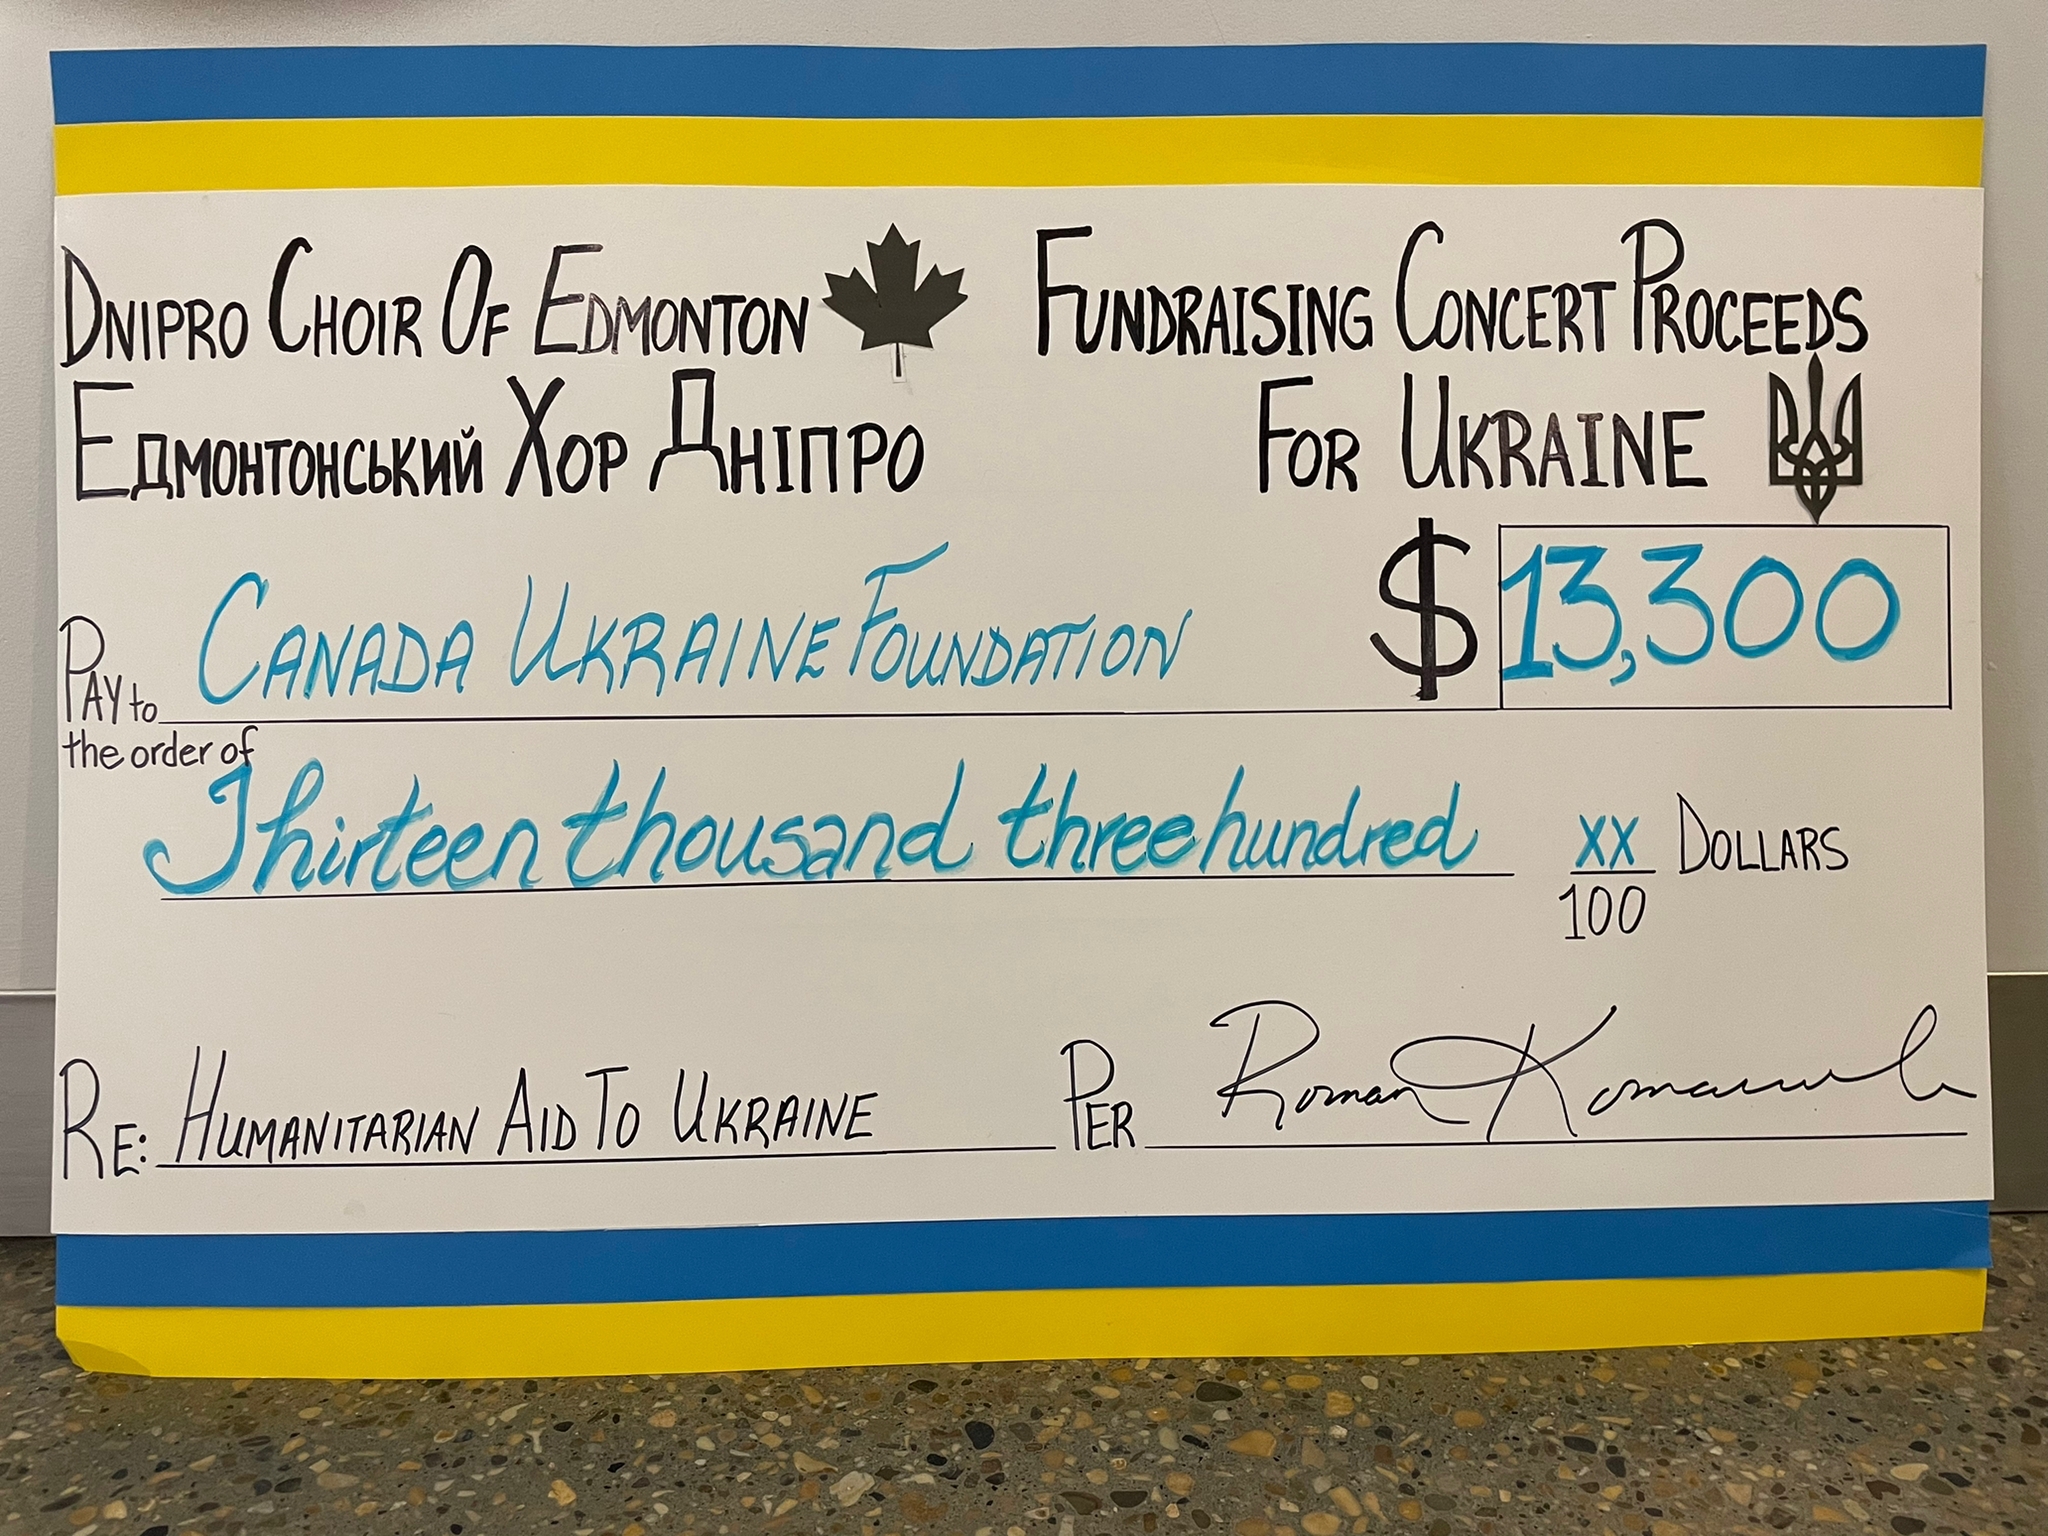 DNIPRO CHOIR OF EDMONTON
ЕДМОНТОНСЬКИЙ ХОР ДНІПРО
FUNDRAISING CONCERT PROCEEDS
FOR UKRAINE
PAY to the order of CANADA UKRAINE FOUNDATION $ 13,300
Thirteen thousand three hundred XX/100 DOLLARS
RE: HUMANITARIAN AID TO UKRAINE
PER Roman